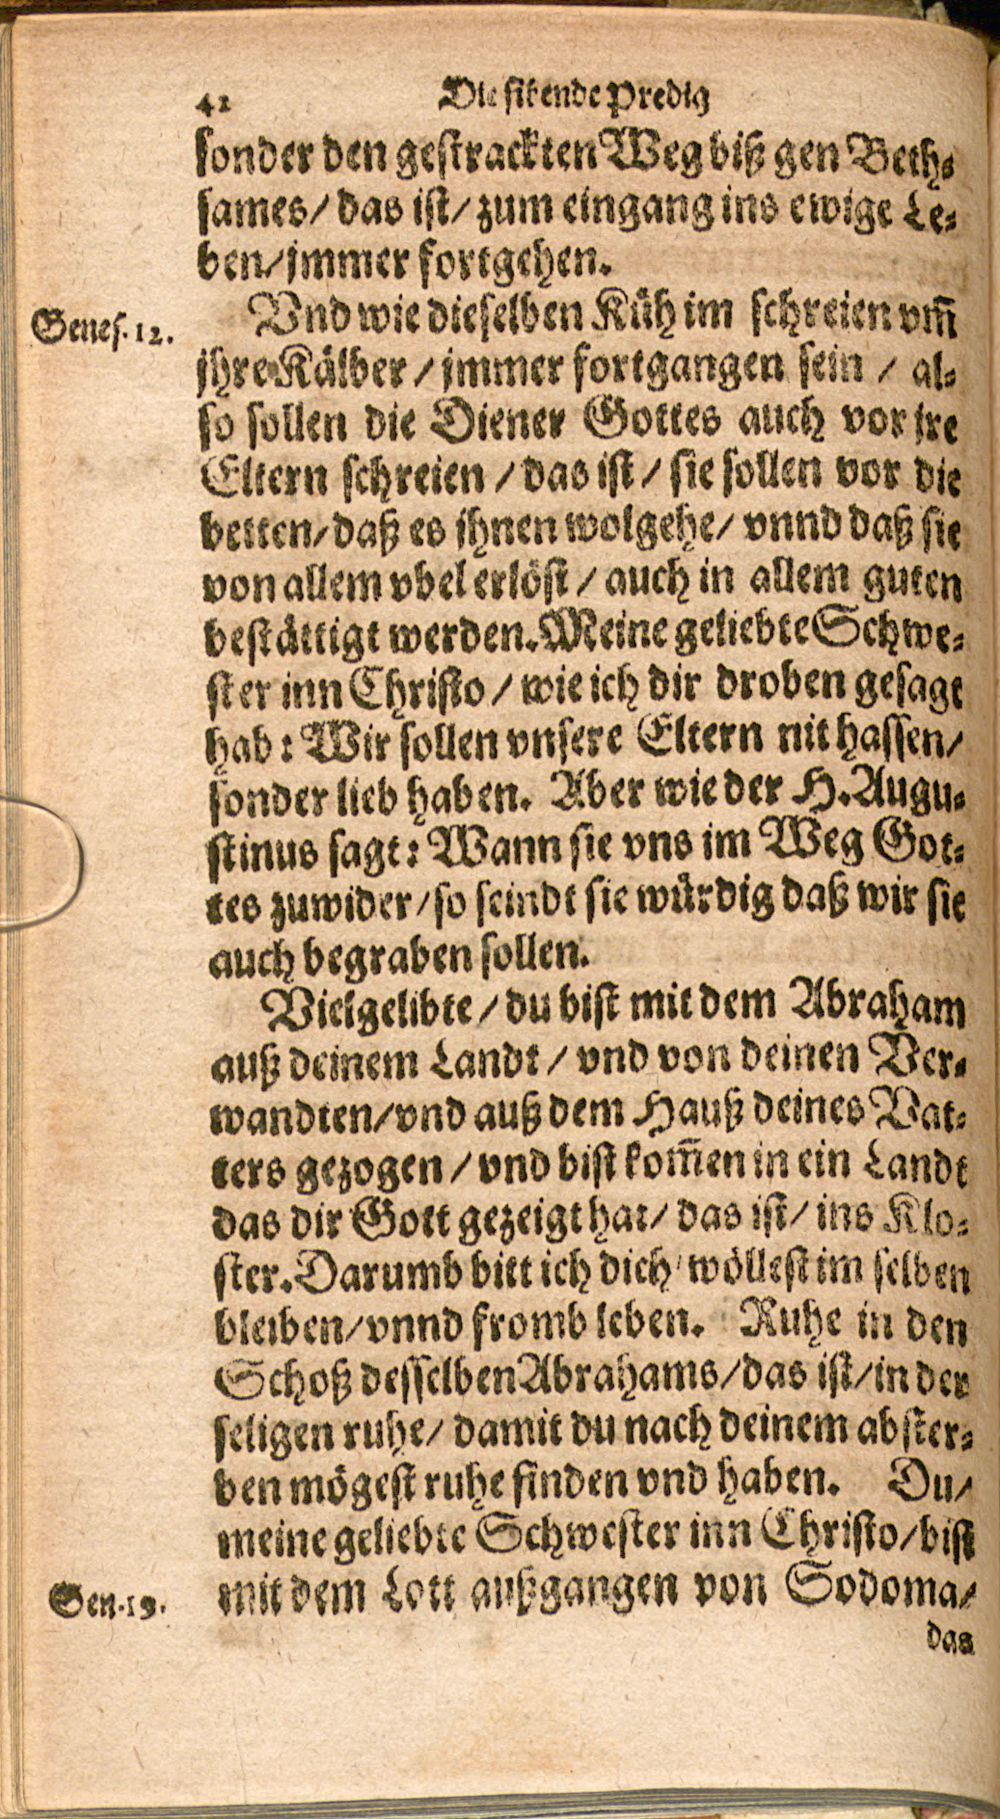 42 Die sibende Predig
sonder den gestrackten Weg biß gen Beth⸗
sames/ das ist/ zum eingang ins ewige Le⸗
ben/ jmmer fortgehen.
Genes. 12. Vnd wie dieselben Küh im schreien vm̄
jhre Kälber / jmmer fortgangen sein / al⸗
so sollen die Diener Gottes auch vor jre
Eltern schreien / das ist / sie sollen vor die
betten/ daß es jhnen wolgehe/ vnnd daß sie
von allem vbel erlöst / auch in allem guten
bestättigt werden. Meine geliebte Schwe⸗
ster inn Christo / wie ich dir droben gesagt
hab: Wir sollen vnsere Eltern nit hassen/
sonder lieb haben. Aber wie der H. Augu⸗
stinus sagt: Wann sie vns im Weg Got⸗
tes zuwider/ so seindt sie würdig daß wir sie
auch begraben sollen.
Vielgelibte / du bist mit dem Abraham
auß deinem Landt / vnd von deinen Ver⸗
wandten/ vnd auß dem Hauß deines Vat⸗
ters gezogen / vnd bist kom̄en in ein Landt
das dir Gott gezeigt hat/ das ist/ ins Klo⸗
ster. Darumb bitt ich dich/ wöllest im selben
bleiben/ vnnd fromb leben. Ruhe in den
Schoß desselben Abrahams/ das ist/ in der
seligen ruhe/ damit du nach deinem abster⸗
ben mögest ruhe finden vnd haben. Du/
meine geliebte Schwester inn Christo/ bist
Gen. 19. mit dem Lott außgangen von Sodoma/
das